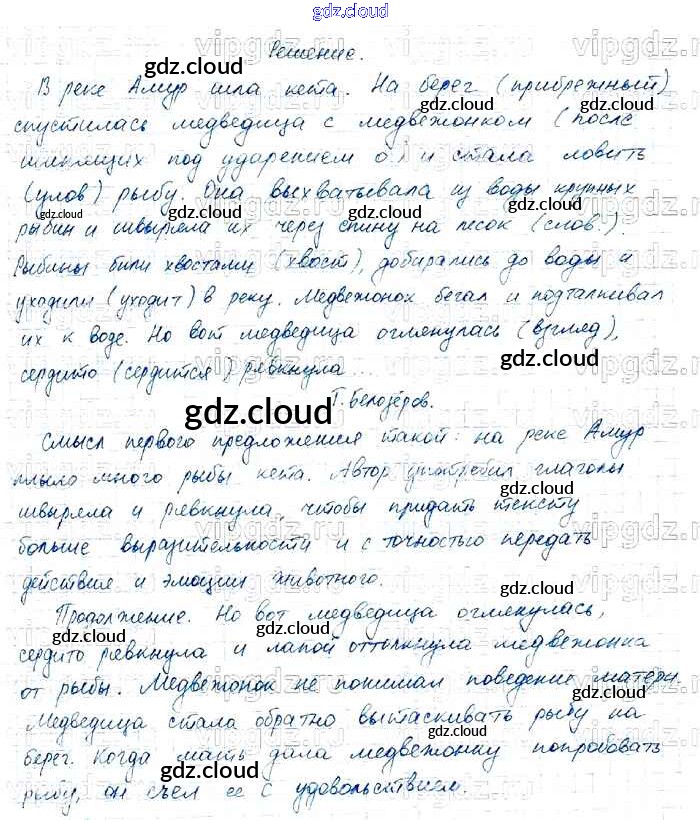 gdz.cloud
Решение.
В реке Амур шла кета. На берег (прибрежный)
спустилась медведица с медвежонком (после
шипящих под ударением о) и стала ловить
(улов) рыбу. Она выхватывала из воды крупных
рыбин и швыряла их через спину на песок (слов.).
Рыбины били хвостами (хвост), добирались до воды и
уходили (уходит) в реку. Медвежонок бегал и подталкивал
их к воде. Но вот медведица оглянулась (взгляд),
сердито (сердится) рявкнула...
Г. Белозёров.
Смысл первого предложения такой: на реке Амур
плыло много рыбы кета. Автор употребил глаголы
швыряла и рявкнула, чтобы придать тексту
больше выразительности и с точностью передать
действие и эмоции животного.
Продолжение. Но вот медведица оглянулась,
сердито рявкнула и лапой оттолкнула медвежонка
от рыбы. Медвежонок не понимал поведение матери.
Медведица стала обратно вытаскивать рыбу на
берег. Когда мать дала медвежонку попробовать
рыбу, он съел ее с удовольствием.